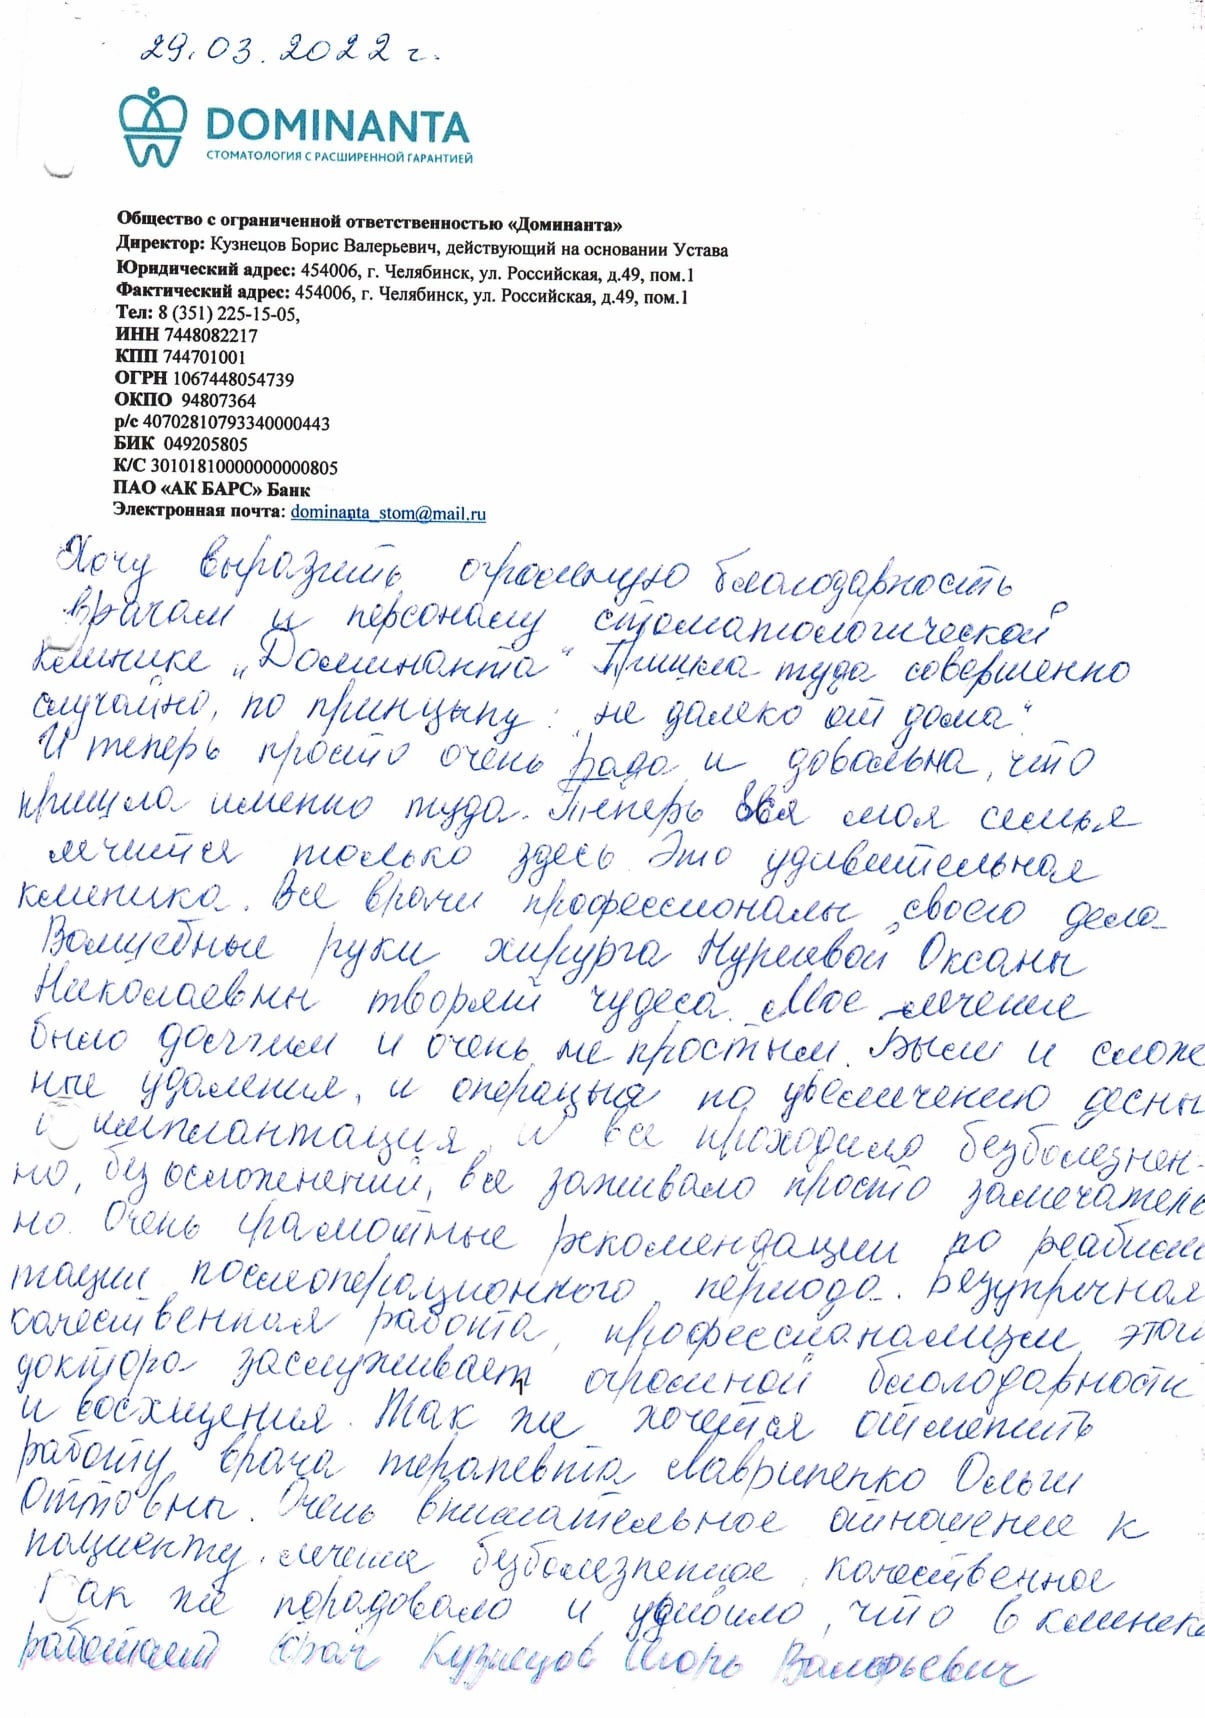 29.03.2022 г.
DOMINANTA
СТОМАТОЛОГИЯ С РАСШИРЕННОЙ ГАРАНТИЕЙ
Общество с ограниченной ответственностью «Доминанта»
Директор: Кузнецов Борис Валерьевич, действующий на основании Устава
Юридический адрес: 454006, г. Челябинск, ул. Российская, д.49, пом.1
Фактический адрес: 454006, г. Челябинск, ул. Российская, д.49, пом.1
Тел: 8 (351) 225-15-05,
ИНН 7448082217
КПП 744701001
ОГРН 1067448054739
ОКПО 94807364
р/с 40702810793340000443
БИК 049205805
К/С 30101810000000000805
ПАО «АК БАРС» Банк
Электронная почта: dominanta_stom@mail.ru
Хочу выразить огромную благодарность
врачам и персоналу стоматологической
клинике „Доминанта" Пришла туда совершенно
случайно, по принцыпу: „не далеко от дома"
И теперь просто очень рада и довольна, что
пришла именно туда. Теперь вся моя семья
лечится только здесь. Это удивительная
клиника. Все врачи профессионалы своего дела.
Волшебные руки хирурга Оксаны
Николаевны творят чудеса. Мое лечение
было долгим и очень не простым. Были и слож
ные удаления, и операция по увеличению десны
и имплантация, и все проходило безболезнен-
но, без осложнений, все заживало просто замечатель
но. Очень грамотные рекомендации по реабили
тации послеоперационного периода. Безупречная
качественная работа, профессианализм этого
доктора заслуживает огромной благодарности
и восхищения. Так же хочется отметить
работу врача терапевта Лавриненко Ольги
Оттовны. Очень внимательное отношение к
пациенту, лечение безболезненное, качественное
Так же порадовало и удивило, что в клинике
работает врач Кузнецов Игорь Валерьевич